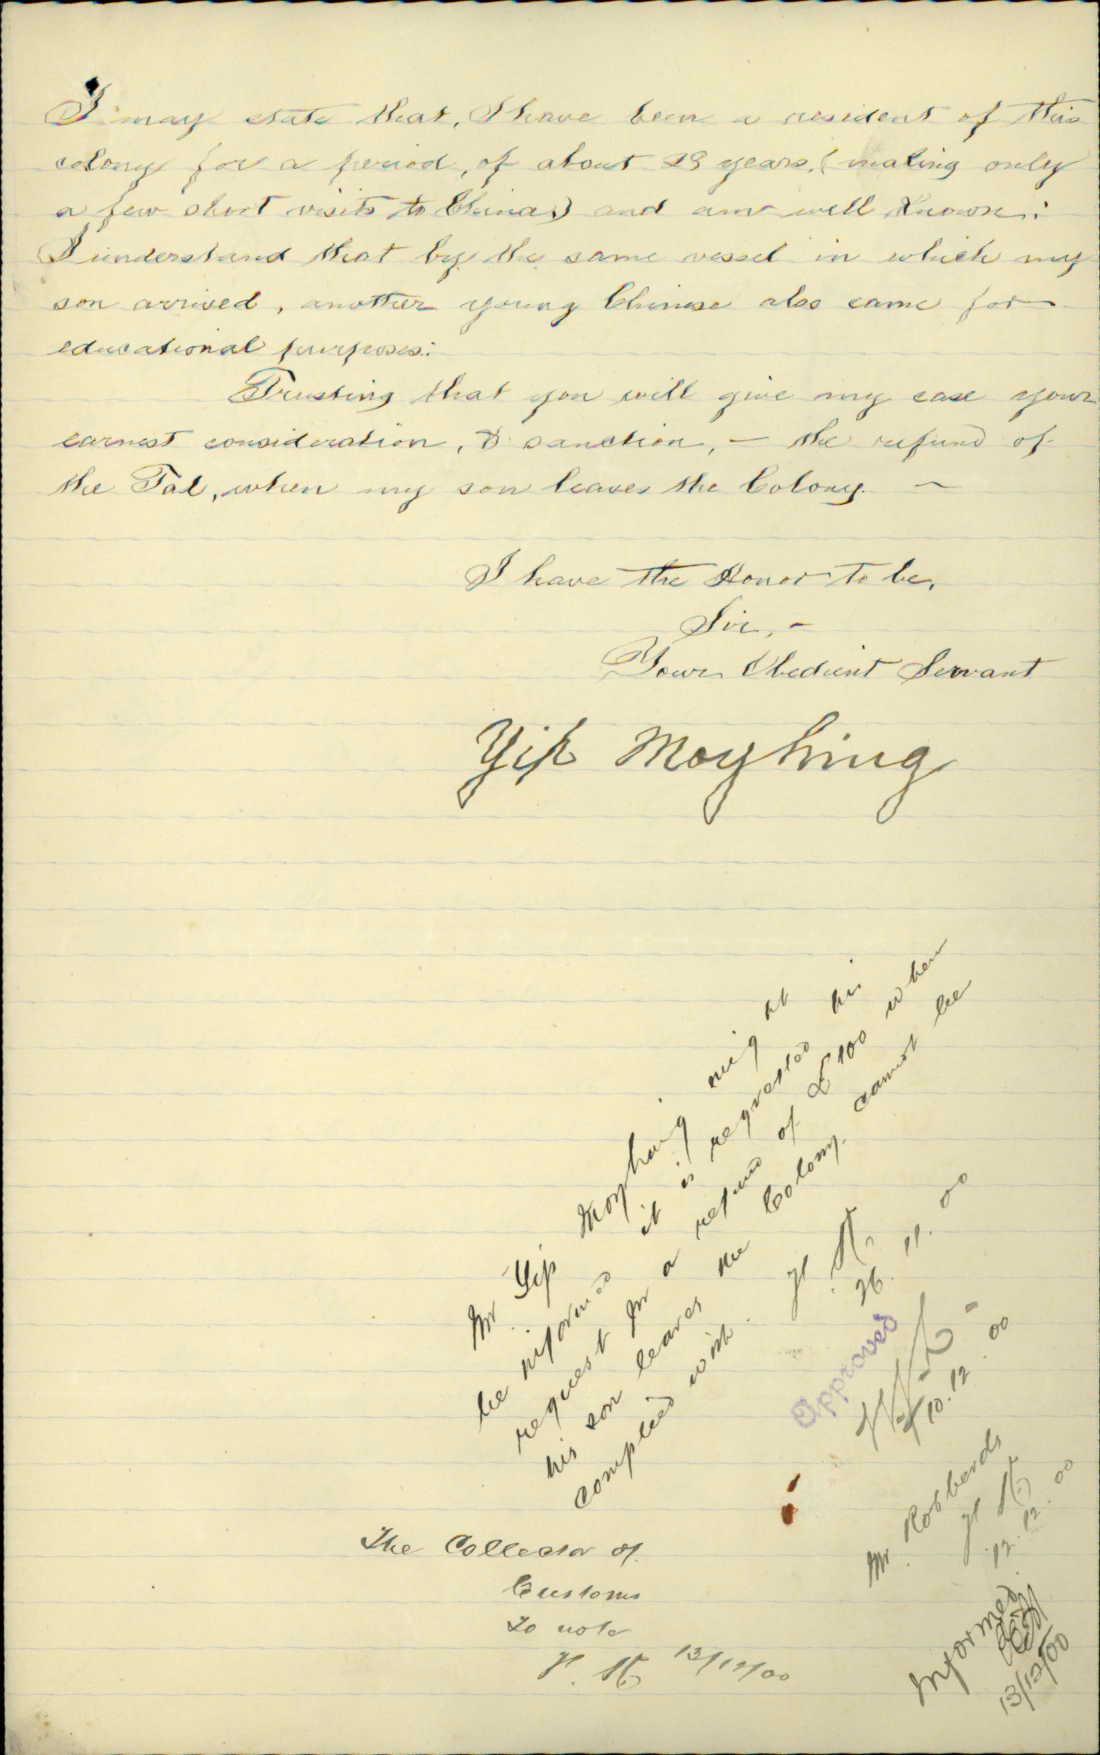 I may state that, I have been a resident of this
colony for a period, of about 23 years, (making only
a few short visits to China,) and am well known:
I understand that by the same vessel in which my
son arrived, another young Chinese also came for
educational purposes:
Trusting that you will give my case your
earnest consideration, & sanction, — the refund of
the Tax, when my son leaves the Colony. —
I have the Honor to be,
Sir, —
Your Obedient Servant
Yip Moy hing
Mr. Yip Moy hing might
be informed it is regretted his
request for a refund of £100 when
his son leaves the Colony cannot be
complied with.
26.11.00
Approved
10.12.00
Mr Robberds
12.12.00
Informed
13/12/00
The Collector of
Customs
To note
13/12/00